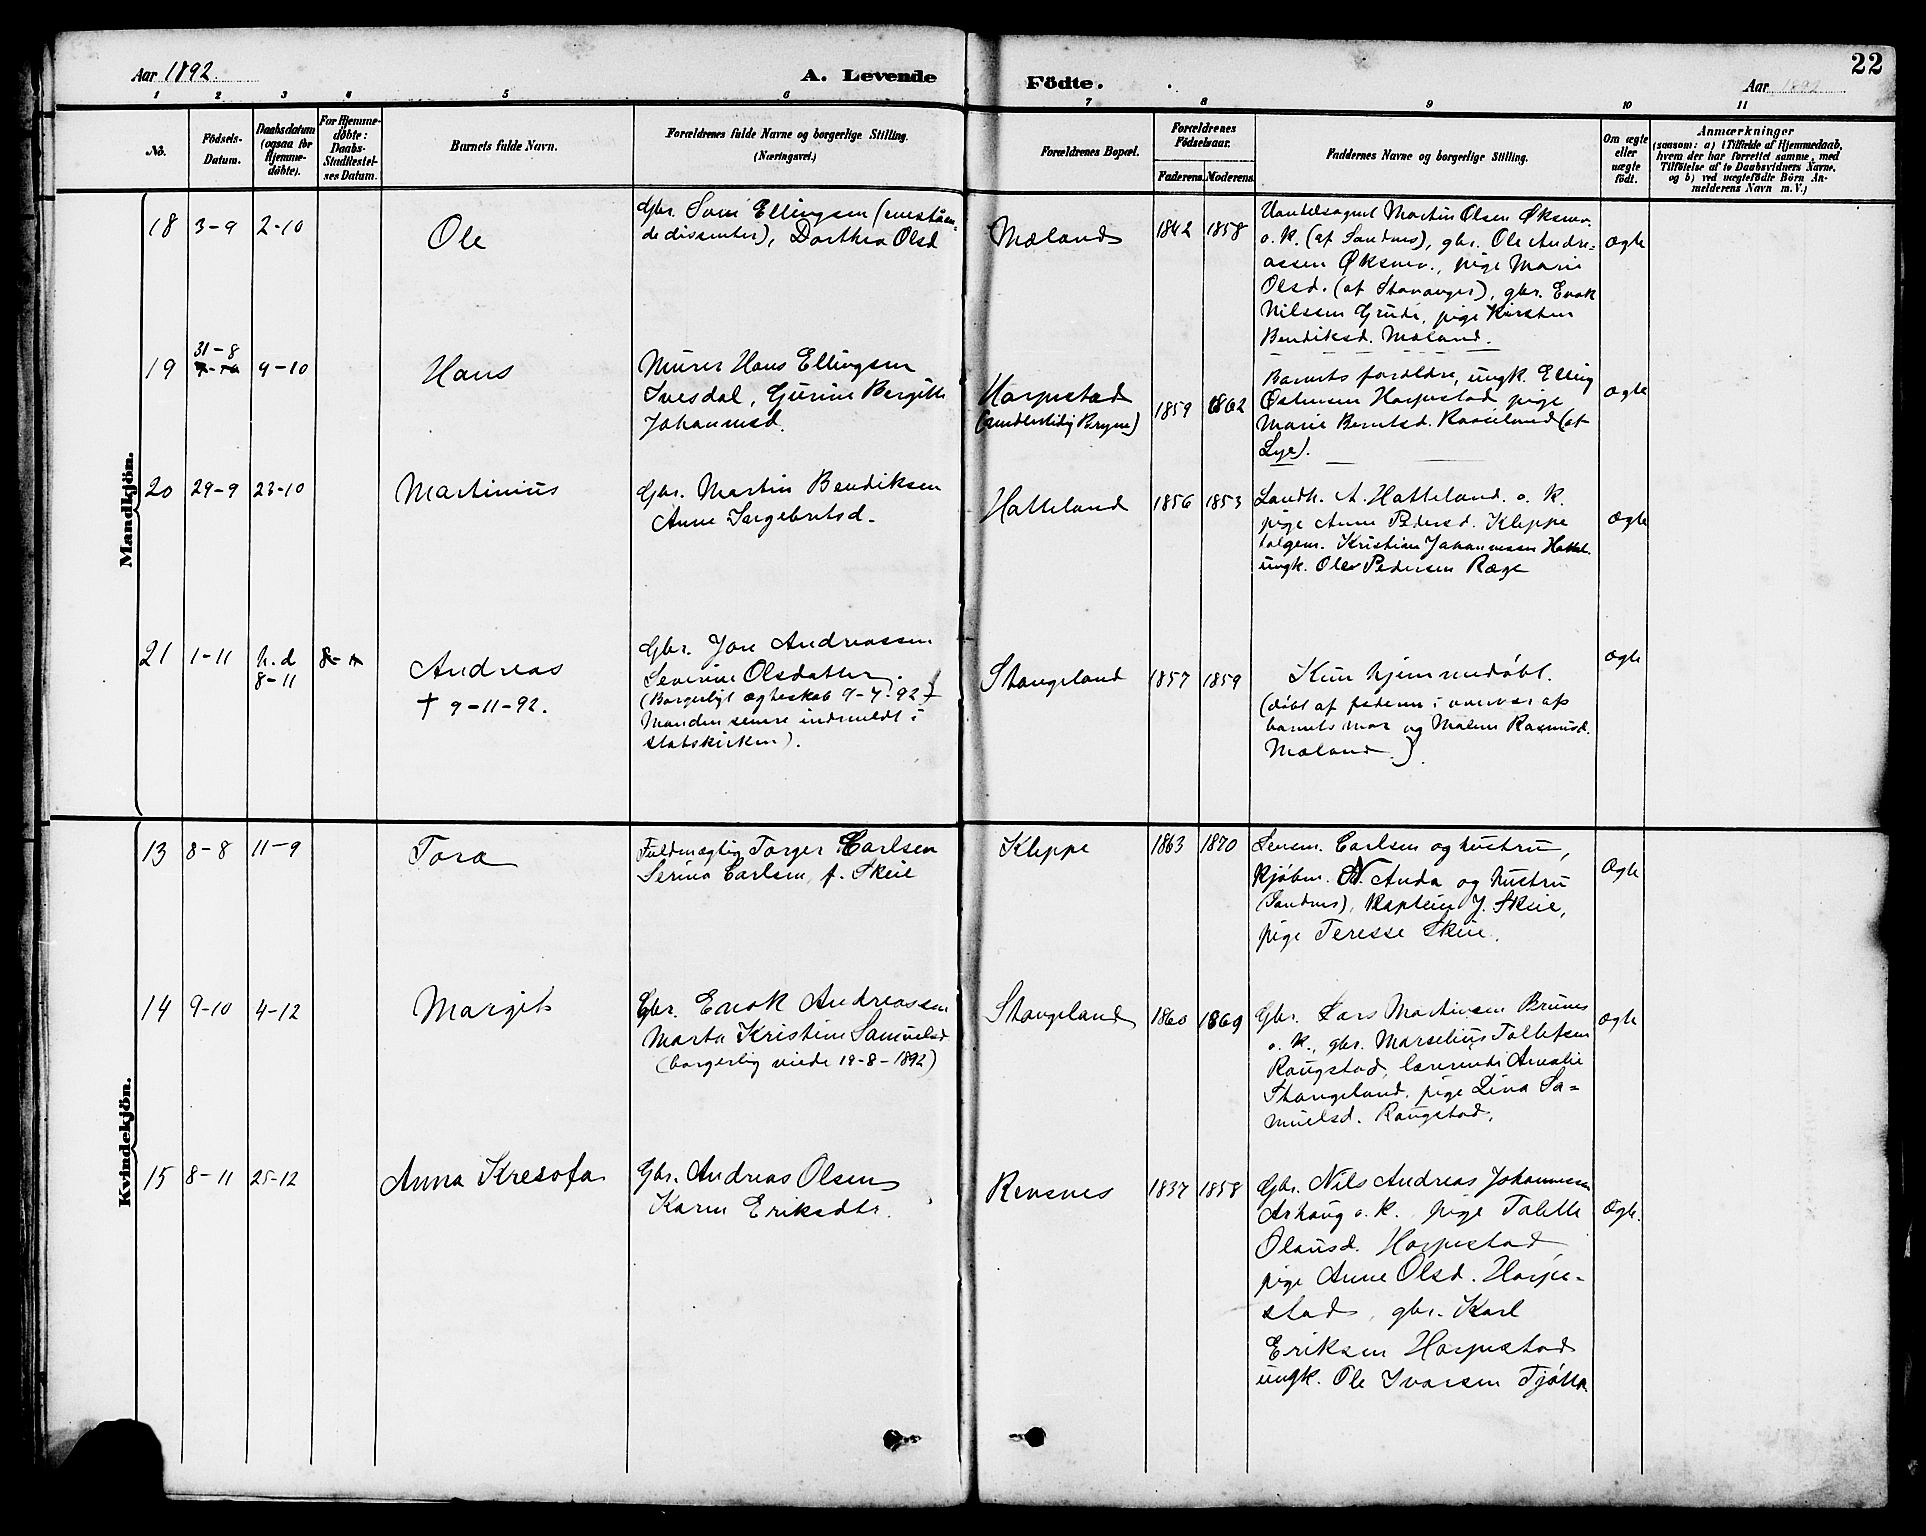 Aar 1892.
A. Levende
Födte.
Aar 1892
22
1 2 3 4 5 6 7 8 9 10 11
No.
Födsels-
Datum.
Daabsdatum
(ogsaa for
Hjemme-
døbte).
For Hjemme-
døbte:
Daabs-
Stadfestel-
ses Datum.
Barnets fulde Navn.
Forældrenes fulde Navne og borgerlige Stilling.
(Næringsvei.)
Forældrenes Bopæl.
Forældrenes
Födselsaar.
Faderens. Moderens.
Faddernes Navne og borgerlige Stilling.
Om ægte
eller
uægte
født.
Anmærkninger
(saasom: a) i Tilfælde af Hjemmedaab,
hvem der har forrettet samme, med
Tilføielse af to Daabsvidners Navne,
og b) ved uægtefødte Börn An-
melderens Navn m. V.)
Mandkjön.
18 3-9 2-10
Ole
Gbr. Ellingsen (eneståen-
de dissenter), Dorthea Olsd
Mæland
1842 1858
Martin Olsen Øksnev.
o. k. (af Sandnes), gbr. Ole Andre-
assen Øksnev., pige Marie
Olsd. (af Stavanger), gbr. Enok
Nilssen Grude, pige Kirsten
Bendiksd. Mæland.
ægte
19 31-8 9-10
Hans
Murer Hans Ellingsen
Ivesdal, Gurine Bergitte
Johannesd.
Horpestad
(midlertidig Bryne)
1859 1862
Barnets forældre, ungk. Elling
Østensen Horpestad pige
Marie Berntsd. (af
Lye).
ægte
20 29-9 23-10
Martinius
Gbr. Martin Bendiksen
Anne Ingebretsd.
Hatteland
1856 1853
Landh. A. Hatteland o. k.
pige Anne Pedersd. Kleppe
Kristian Johannessen Hattel.
ungk. Olev Pedersen Ræge
ægte
21 1-11 h.d
8-11
8-11
Andreas
† 9-11-92.
Gbr. Jon Andreassen
Severine Olsdatter.
(Borgerligt ægteskab 7-7-92.
Manden senere indmeldt i
statskirken).
Stangeland
1857 1859
Kun hjemmedøbt.
(døbt af faderen i overvær af
barnets mor og Malene Rasmusd.
Mæland.)
ægte
Kvindekjön.
13 8-8 11-9
Tora
Fuldmægtig Torger Carlsen
Serina Carlsen, f. Skeie
Kleppe
1863 1870
Lensm. Carlsen og hustru,
kjøbm. N. Anda og hustru
(Sandnes), kaptein J. Skeie,
pige Teresse Skeie.
Ægte
14 9-10 4-12
Margit
Gbr. Enok Andreassen
Marta Kristine Samuelsd
(borgerlig viede 18-8-1892)
Stangeland
1860 1869
Gbr. Lars Martinsen Brunes
o. k., gbr. Marselius Tollefsen
Raugstad, lærerinde Amalie
Stangeland, pige Lina Sa-
muelsd. Raugstad.
ægte
15 8-11 25-12
Anna Kresofa
Gbr. Andreas Olsen
Karen Eriksdtr.
Revsnes
1837 1858
Gbr. Nils Andreas Johannessen
Arhaug o. k. pige Tolette
Olausd. Horpestad
pige Anne Olsd. Horpe-
stad, gbr. Karl
Eriksen Horpestad
ungk. Ole Ivarsen Tjøtta
Ægte.